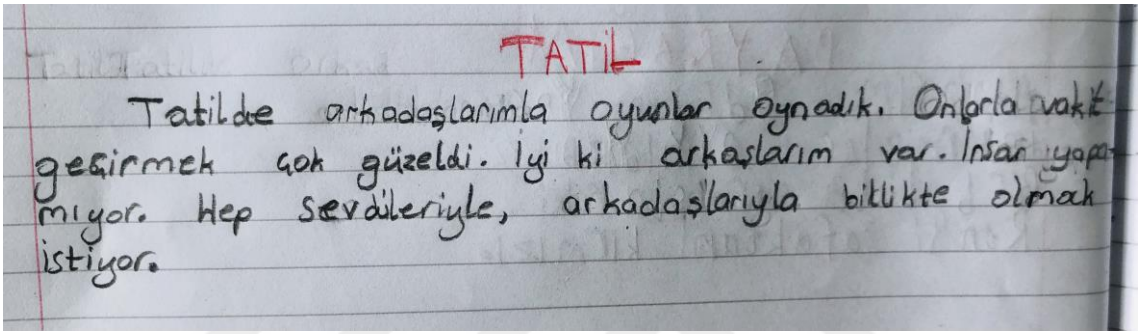 TATİL
Tatilde arkadaşlarımla oyunlar oynadık. Onlarla vakit
geçirmek çok güzeldi. İyi ki arkaşlarım var. İnsan yapa
mıyor. Hep sevdileriyle, arkadaşlarıyla bitlikte olmak
istiyor.